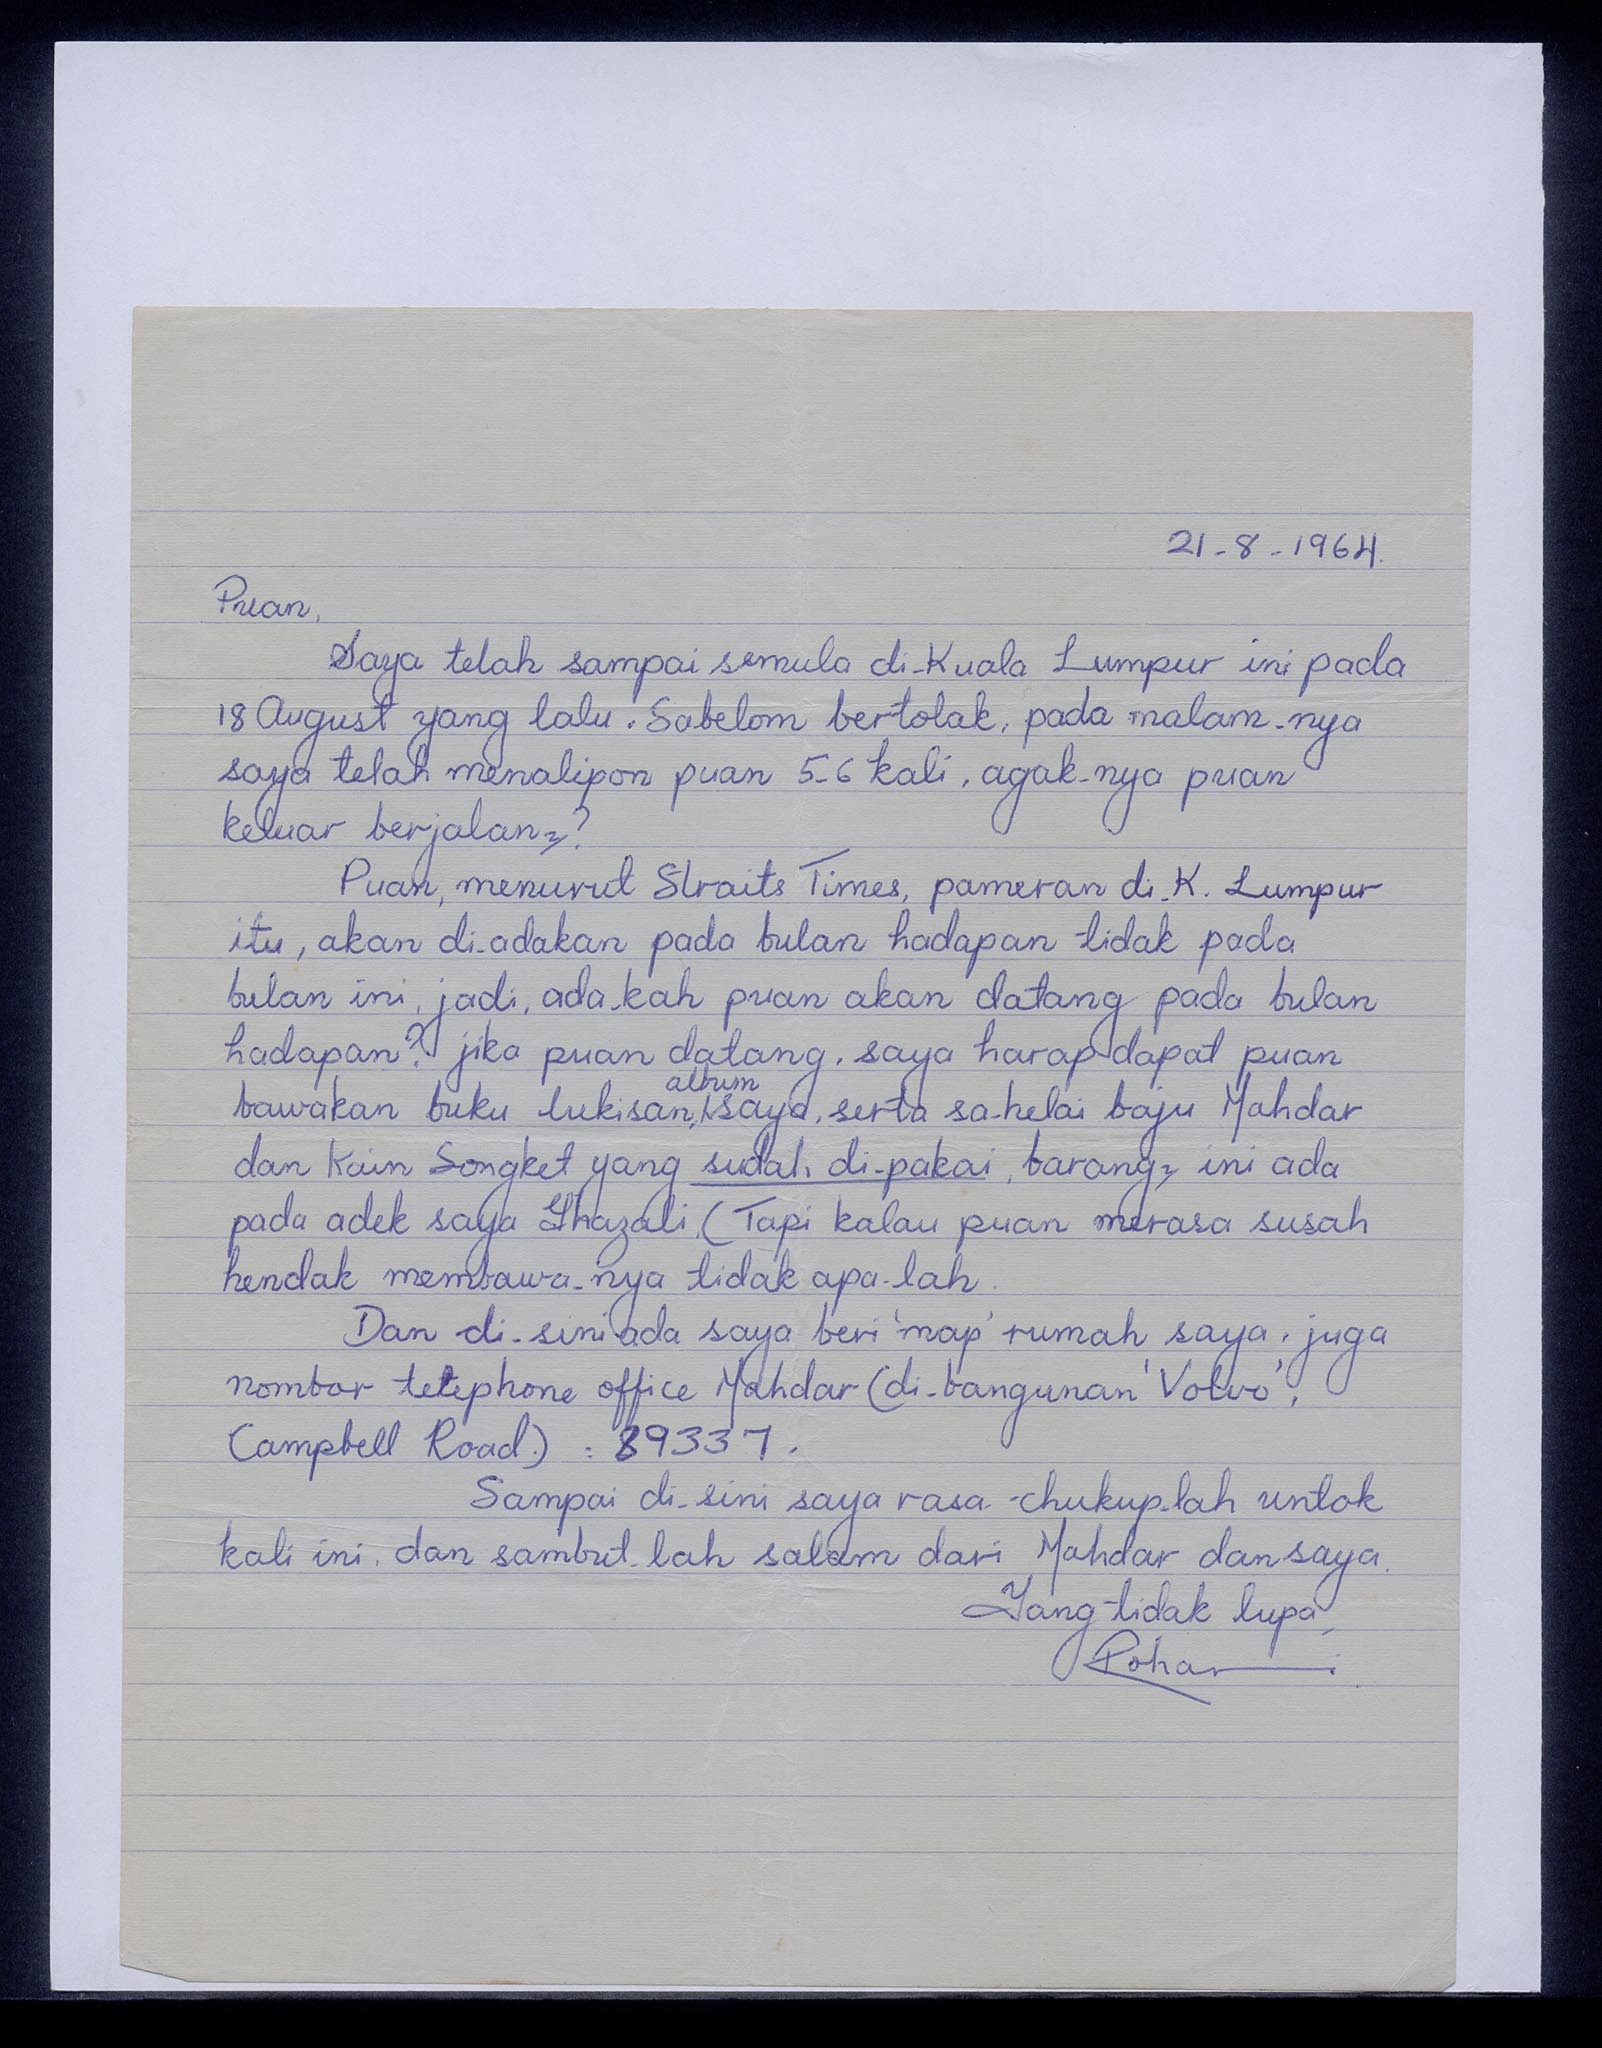 21-8-1964.
Puan,
Saya telah sampai semula di-Kuala Lumpur ini pada
18 August yang lalu. Sabelom bertolak, pada malam-nya
saya telah menalipon puan 5-6 kali, agak-nya puan
keluar berjalan2?
Puan, menurut Straits Times, pameran di-K. Lumpur
itu, akan di-adakan pada bulan hadapan tidak pada
bulan ini, jadi, ada-kah puan akan datang pada bulan
hadapan? jika puan datang, saya harap dapat puan
album
bawakan buku lukisan, saya, serta sa-helai baju Mahdar
dan Kain Songket yang sudah di-pakai, barang2 ini ada
pada adek saya Ghazali. (Tapi kalau puan merasa susah
hendak membawa-nya tidak apa-lah.
Dan di-sini ada saya beri 'map' rumah saya, juga
nombor telephone office Mahdar (di-bangunan 'Volvo',
Campbell Road.) : 89337.
Sampai di-sini saya rasa chukup-lah untok
kali ini, dan sambut-lah salam dari Mahdar dan saya.
Yang tidak lupa,
Rohar